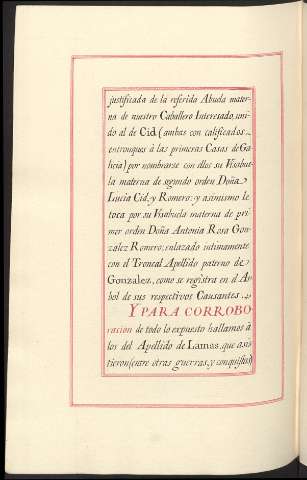 justificada de la referida Abuela mater-
na de nuestro Caballero Interesado, uni-
do al de Cid (ambas con calificados
entronques à las primeras Casas de Ga-
licia) por nombrarse con ellos su Visabue-
la materna de segundo orden Doña
Lucia Cid y Romero: y asimismo le
toca por su Visabuela materna de pri-
mer orden Doña Antonia Rosa Gon-
zalez Romero; enlazado intimamente
con el Troncal Apellido paterno de
Gonzalez, como se registra en el Ar-
bol de sus respectivos Causantes.
Y PARA CORROBO
racion de todo lo expuesto hallamos à
los del Apellido de Lamas, que asis
tieron (entre otras guerras, y conquistas)